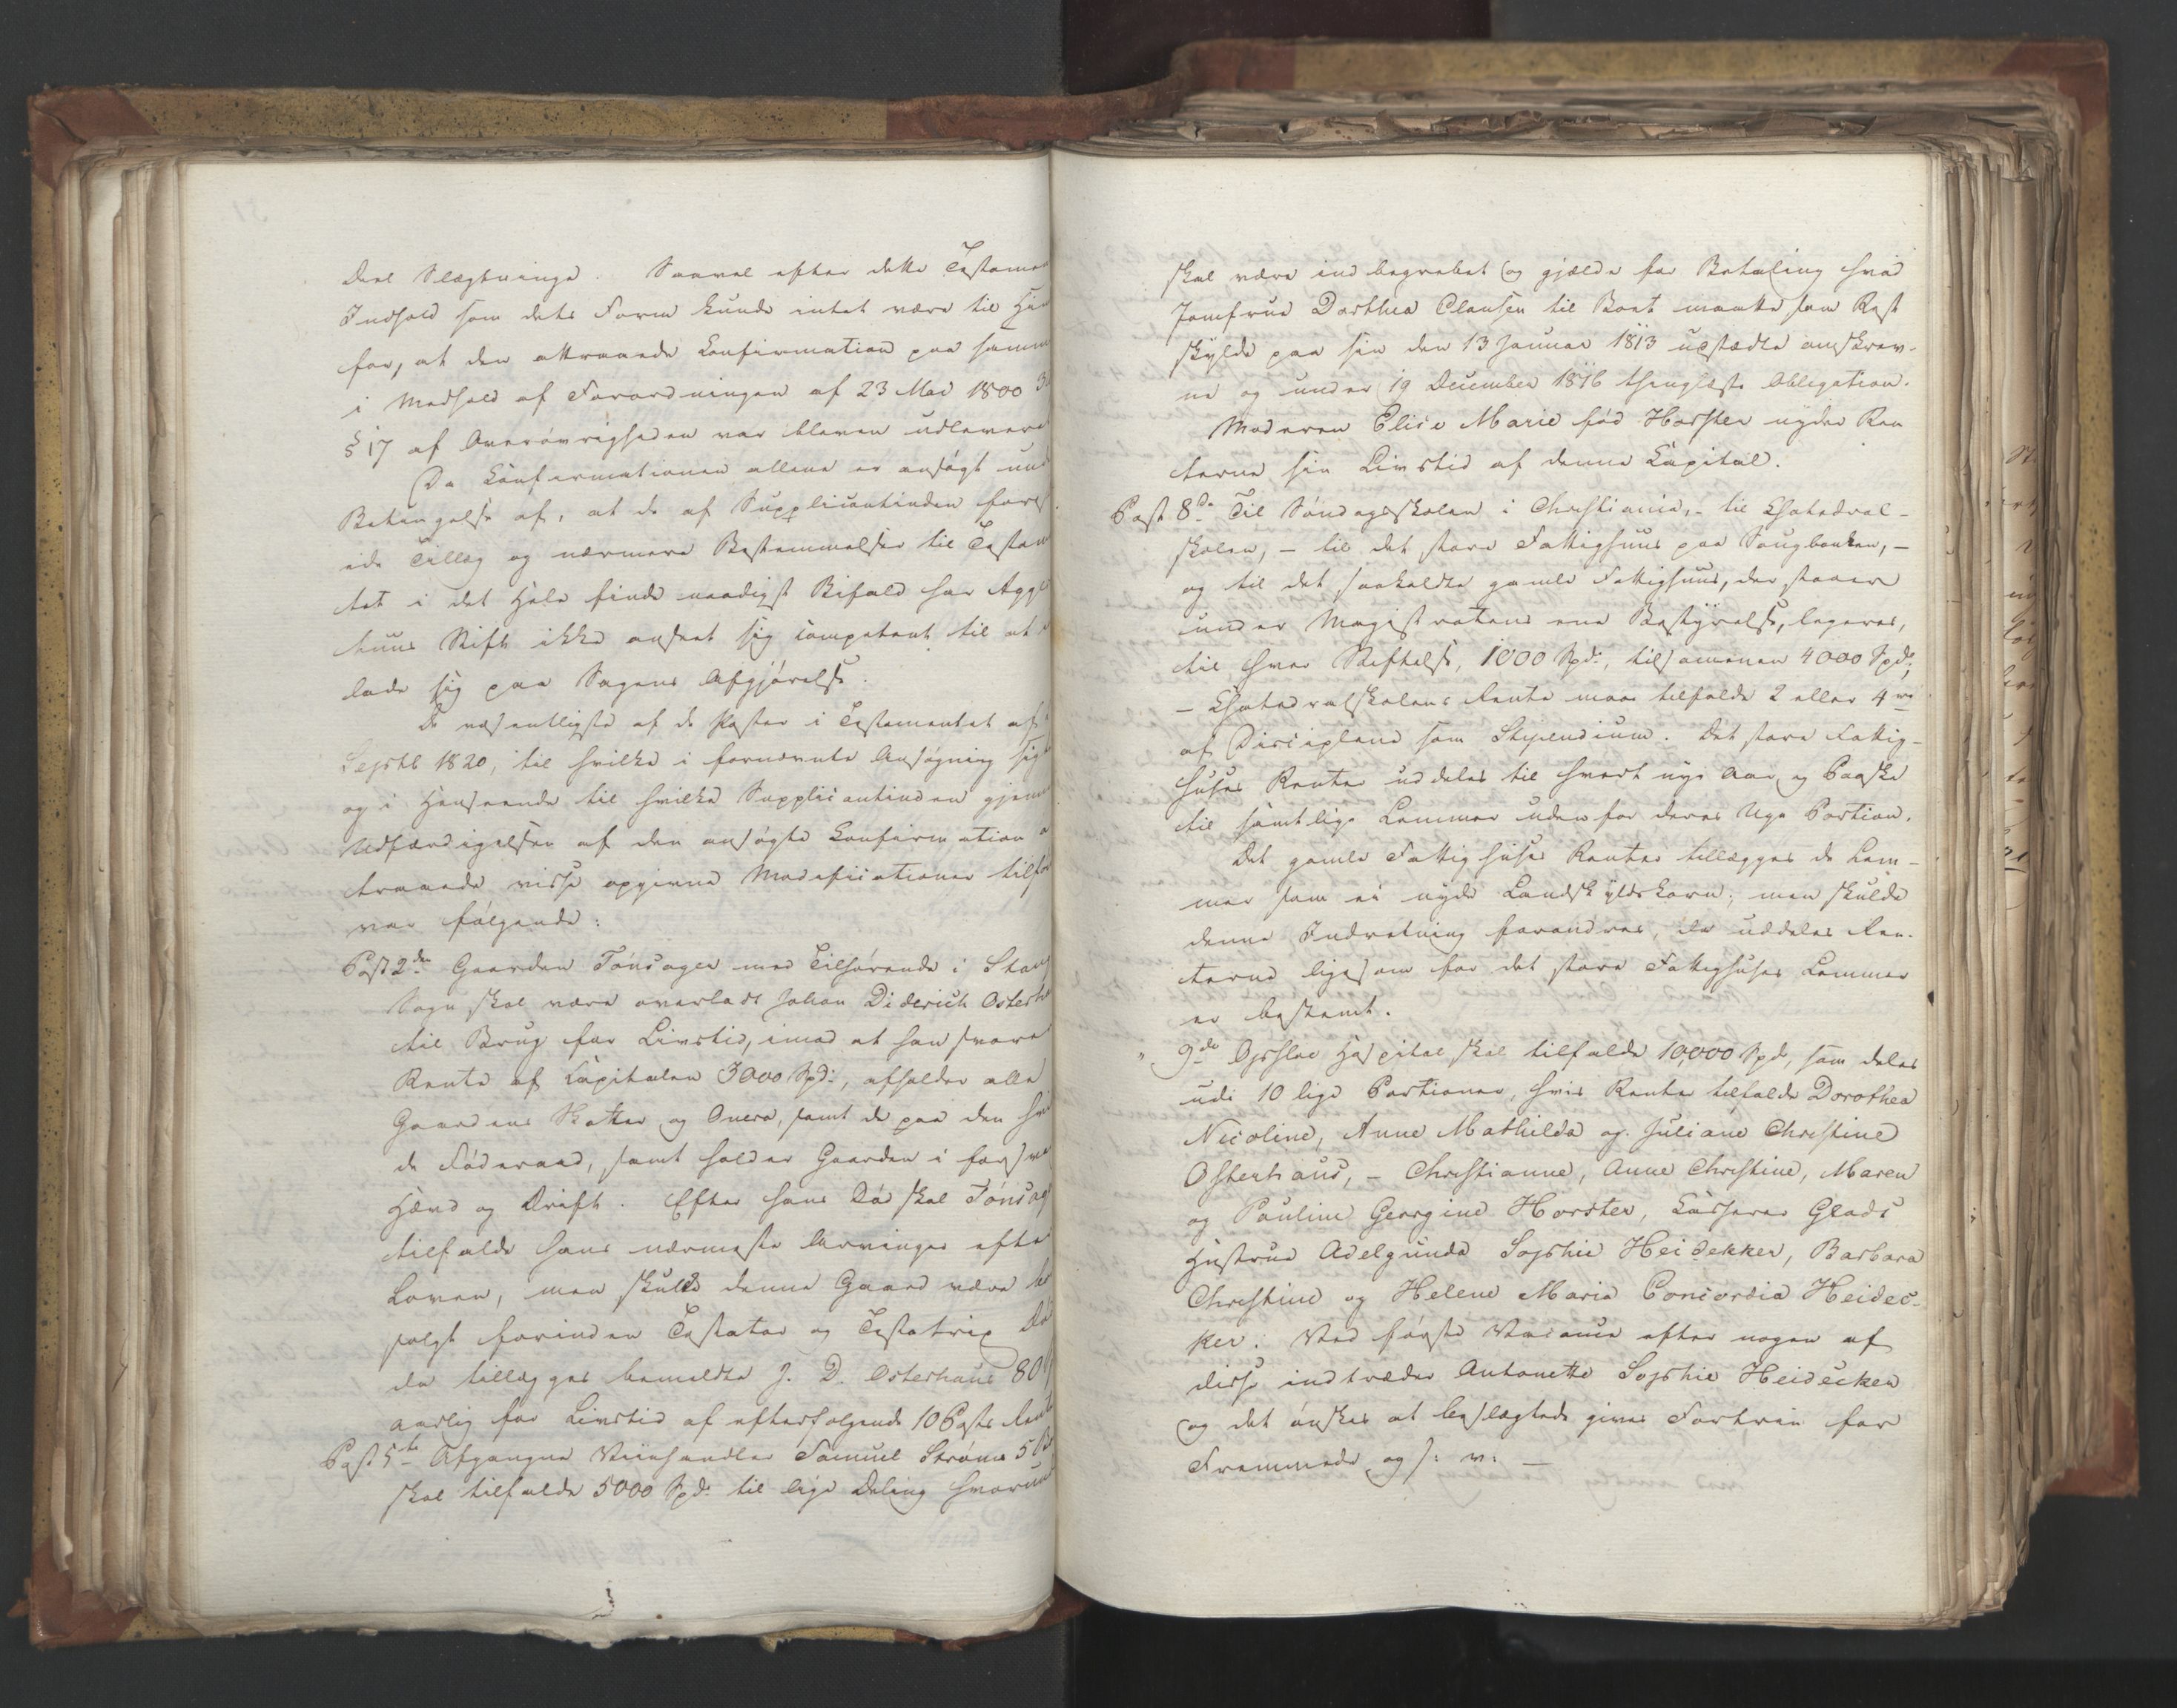 deel Slægtninge. Saavel efter dette Testamen
Indhold som dets Form kunde intet være til Hin
for, at den attraaede Confirmation paa samme
i Medhold af Forordningen af 23 Mai 1800
§ 17 af Overøvrigheden var bleven udleveret
Da Confirmationen allene er ansøgt und
Betingelse af, at de af Supplicantinden fore
ede Tillæg og nærmere Bestemmelser til Testam
tet i det Hele finde naadigst Bifald har Agge
huus Stift ikke anseet sig competent til at
lade sig paa Sagens Afgjørelse.
De væsentligste af de Poster i Testamentet af
Septbr 1820, til hvilke i fornævnte Ansøgning sig
og i Henseende til hvilke Supplicantinden gjenne
Udfærdigelsen af den ansøgte Confirmation a
traaede visse opgivne Modificationer tilfø
var følgende:
Post 2den Gaarden Tønsager med Tilhørende i Stang
Sogn skal være overladt Johan Diderich Osterha
til Brug for Livstid, imod at han svarer
Rente af Capitalen 3000 Spd:, afholder alle
Gaardens Skatter og Onera, samt de paa den hvi
de Føderaad, samt holder Gaarden i forsva
Hævd og Drift. Efter hans Død skal Tønsag
tilfalde hans nærmeste Arvinger efter
Loven, men skulde denne Gaard være bor
solgt forinden Testator og Testatrix Dø
da tillægges bemeldte J. D. Osterhaus 80
aarlig for Livstid af efterfølgende 10 Posts Rent
Post 5te Afgangne Viinhandler Samuel Strøms 5 Bø
skal tilfalde 5000 Spd: til lige Deling hvorund
skal være indbegrebet og gjælde for Betaling hvad
Jomfrue Dorthea Clausen til Boet maatte som Rest
skylde paa sin den 13 Januar 1813 udstædte omskrev-
ne og under 19 December 1816 thinglæste Obligation.
Moderen Elise Marie fød Horster nyder Ren
terne sin Livstid af denne Capital.
Post 8de Til Søndagsskolen i Christiania, - til Chatedral-
skolen, - til det store Fattighuus paa Saugbanken, -
og til det saakaldte gamle Fattighuus, der staaer
under Magistratens ene Bestyrelse, legeres,
til hver Stiftelse, 1000 Spd:, tilsammen 4000 Spd:,
- Chatedralskolens Rente maae tilfalde 2 eller 4re
af Disciplene som Stipendium. Det store Fattig-
huses Renter uddeles til hvert nye Aar og Paaske
til samtlige Lemmer uden for deres Uge Portion.
Det gamle Fattighuses Renter tillægges de Lem-
mer som ei nyde Landskyldskorn; men skulde
denne Indretning forandres, da uddeles Ren-
terne ligesom for det store Fattighuses Lemmer
er bestemt.
" 9de Opsloe Hospital skal tilfalde 10,000 Spd, som deles
udi 10 lige Portioner, hvis Renter tilfalde Dorothea
Nicoline, Anne Mathilda og Juliane Christine
Osterhaus, - Christianne, Anne Christine, Maren
og Pauline Georgine Horster, Casserer Glads
Hustrue Adelgunda Sophie Heidekker, Barbara
Christine og Helene Maria Concordia Heidec-
ker. Ved første Vacance efter nogen af
disse indtræder Antonette Sophie Heidecker
og det ønskes at beslægtede gives Fortrin for
Fremmede og s: v: -